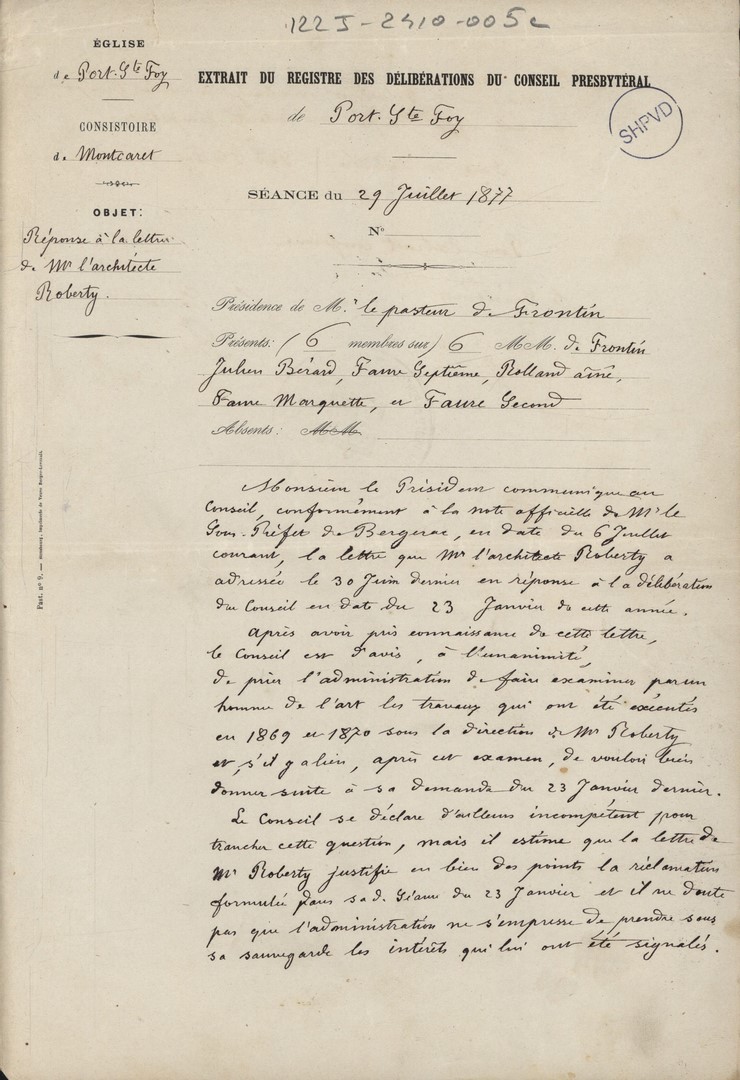 122 J - 2410 - 005 c
ÉGLISE
de Port. Ste Foy
CONSISTOIRE
de Montcaret
OBJET:
Réponse à la lettre
de Mr l'architecte
Roberty.
EXTRAIT DU REGISTRE DES DÉLIBÉRATIONS DU CONSEIL PRESBYTÉRAL
de Port. Ste Foy
SHPVD
SÉANCE du 29 Juillet 1877
No
Présidence de M.r le pasteur de Frontin
Présents: (6 membres sur) 6 MM. de Frontin
Julien Bérard, Faure Septième, Rolland aîné,
Faure Marquette, et Faure Second
Absents: MM
Monsieur le Président communique au
Conseil, conformément à la note officielle de Mr le
Sous-Préfet de Bergerac, en date du 6 Juillet
courant, la lettre que Mr l'architecte Roberty a
adressée le 30 Juin dernier en réponse à la délibération
du Conseil en date du 23 Janvier de cette année.
Après avoir pris connaissance de cette lettre,
le Conseil est d'avis, à l'unanimité,
de prier l'administration de faire examiner par un
homme de l'art les travaux qui ont été exécutés
en 1869 et 1870 sous la direction de Mr Roberty
et, s'il y a lieu, après cet examen, de vouloir bien
donner suite à sa demande du 23 Janvier dernier.
Le Conseil se déclare d'ailleurs incompétent pour
trancher cette question, mais il estime que la lettre de
Mr Roberty justifie en bien des points la réclamation
formulée dans sa d. Séance du 23 Janvier et il ne doute
pas que l'administration ne s'empresse de prendre sous
sa sauvegarde les intérêts qui lui ont été signalés.
Fust. no 9. — Strasbourg, imprimerie de Veuve Berger-Levrault.